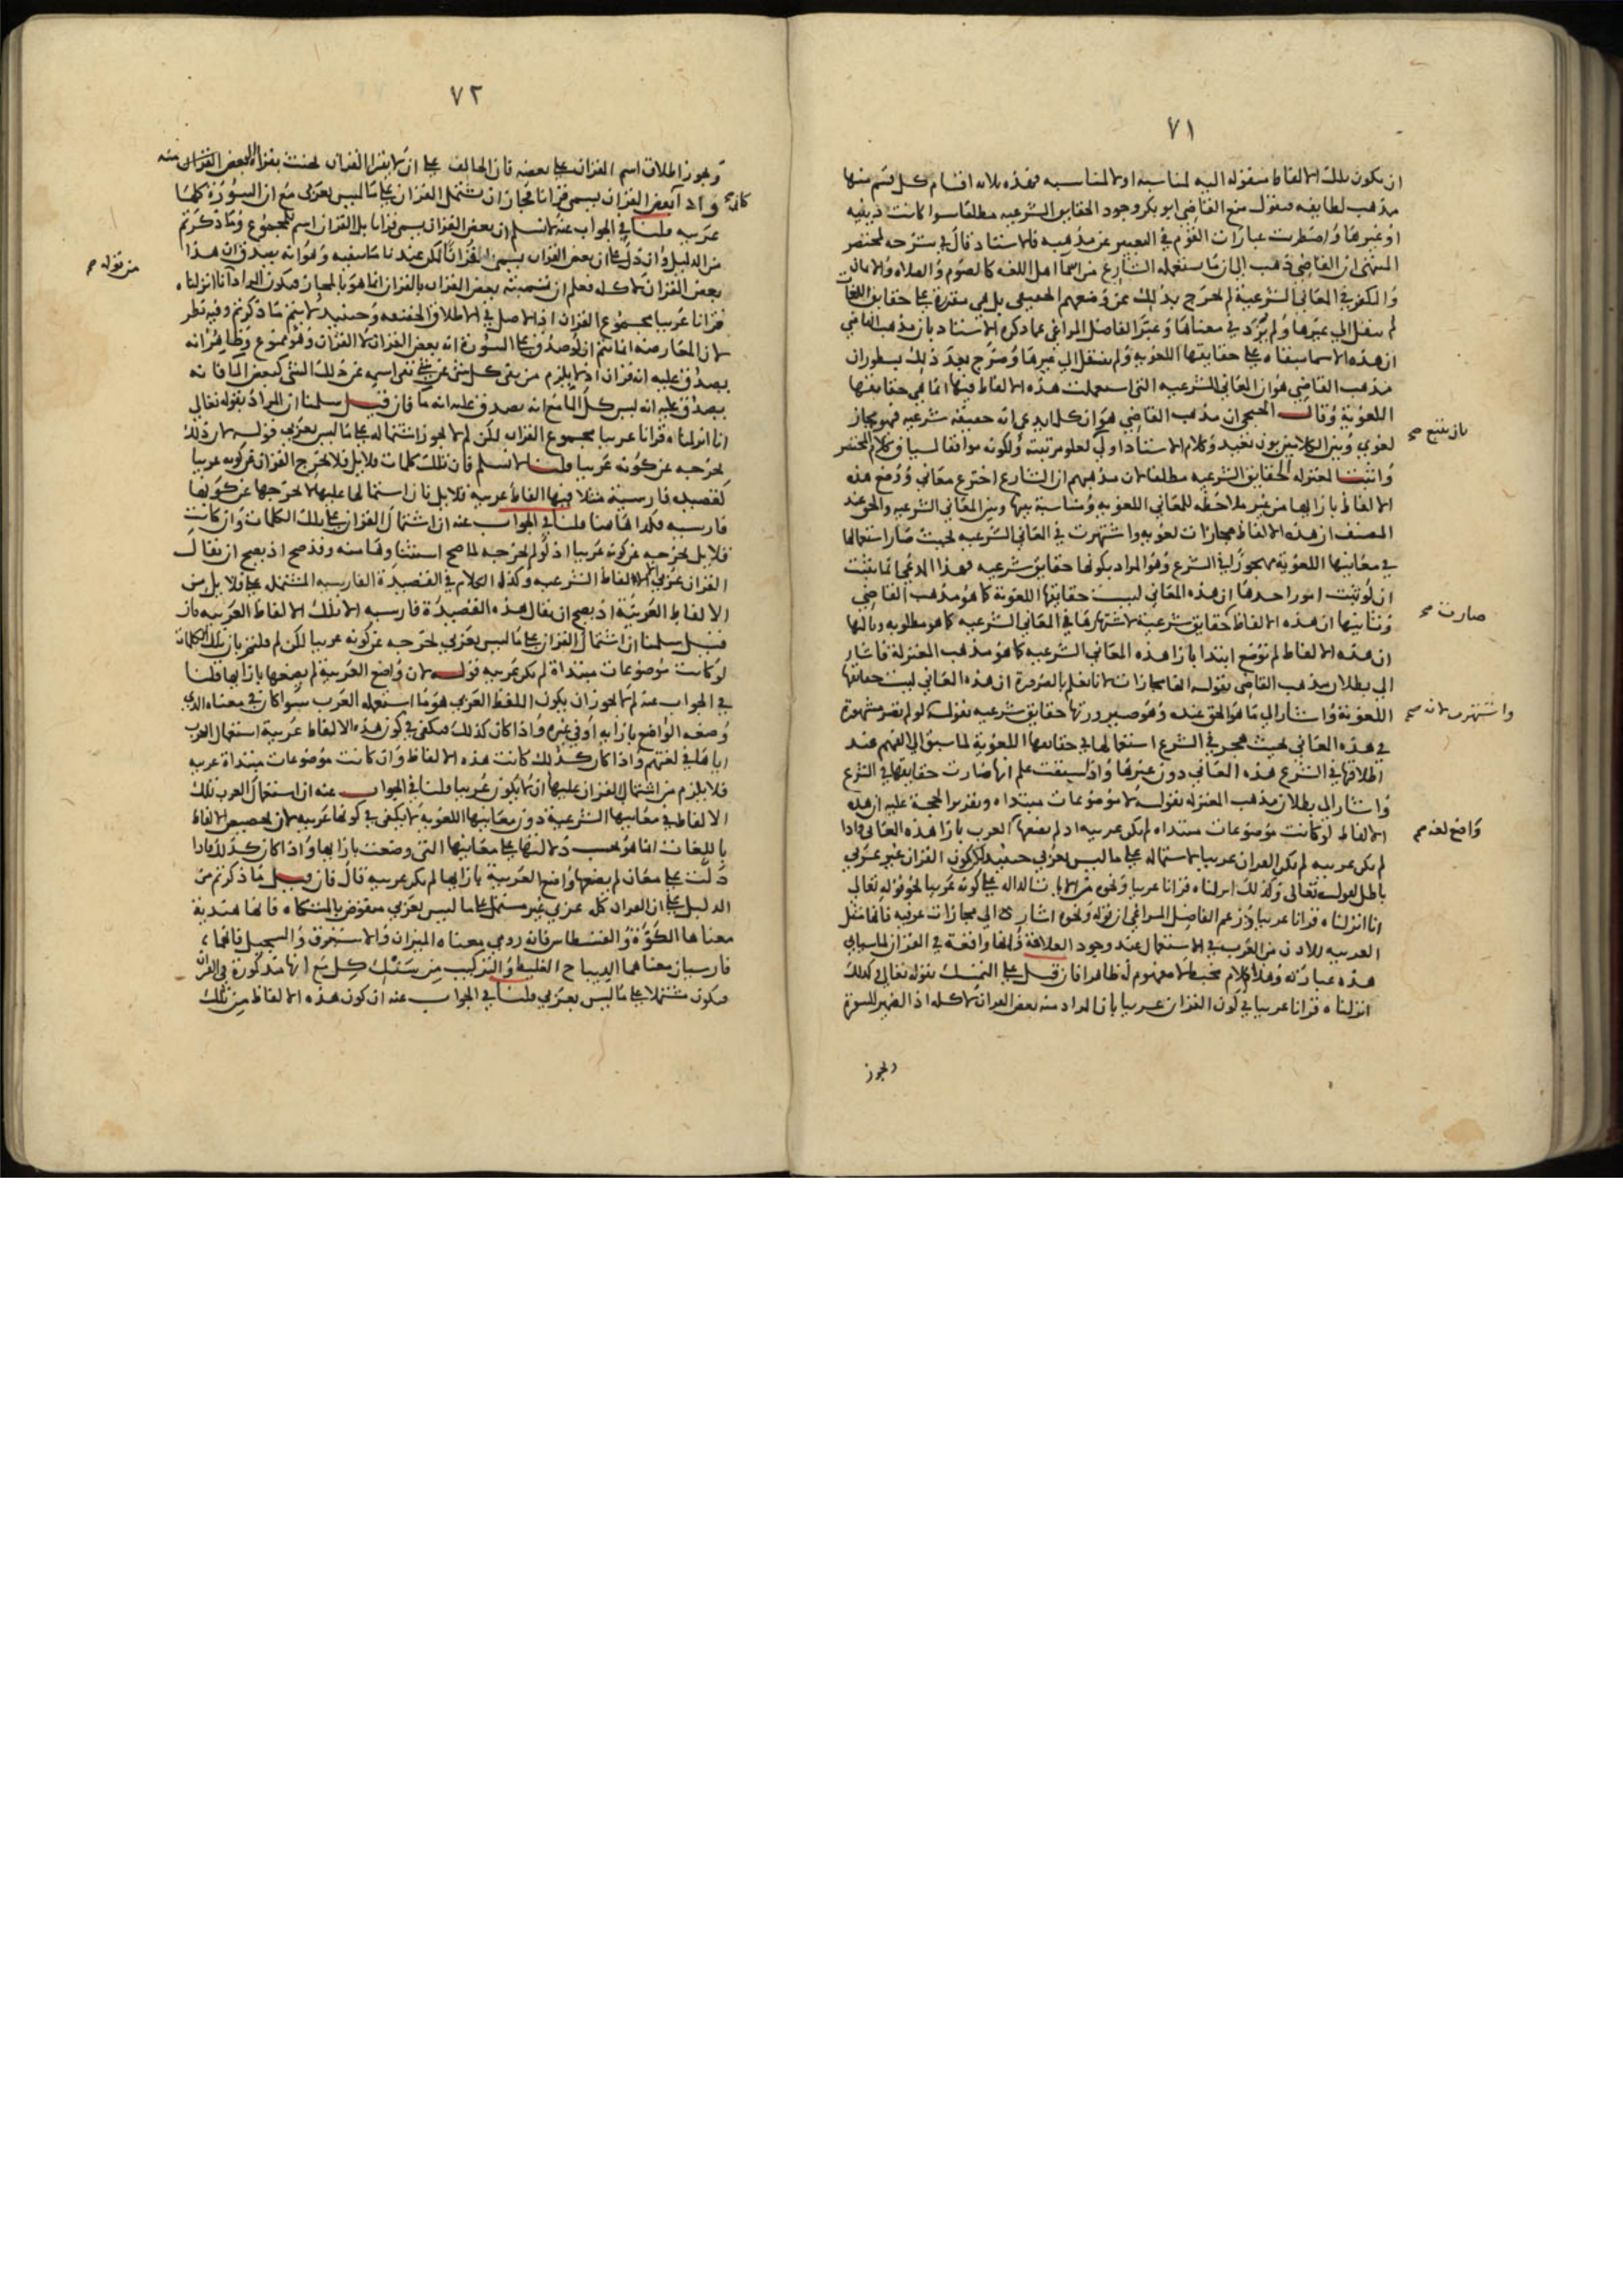 ٧١
ان يكون تلك الالفاظ منقوله اليه لمناسبه او لا لمناسبه فهذه ثلاثه اقسام كل قسم منها
مذهب لطايفه فنقول منع القاضي ابو بكر وجود الحقايق الشرعيه مطلقا سوا كانت دينيه
او غيرها واضطربت عبارات القوم في التعبير عن مذهبه فالاستاد قال في شرحه لمختصر
المنتهى ان القاضي ذهب الى ان ما يستعمله الشارع من اسما اهل اللغه كالصوم والصلاه والايمان
والكفر في المعاني الشرعية لم يخرج بذلك عن وضعهم الحقيقي بل هي مقررة على حقايق اللغات
لم ينقل الى غيرها ولم يزد في معناها وعبر الفاضل المراغي عما ذكره الاستاد بان مذهب القاضي
ان هذه الاسما مبقاه على حقايقها اللغويه ولم ينقل الى غيرها وصرح بعد ذلك بسطور ان
مذهب القاضي هو ان المعاني الشرعيه التي استعملت هذه الالفاظ فيها انما هي حقايقها
اللغوية وقال الخنجي ان مذهب القاضي هو ان كل ما يدعي انه حقيقة شرعيه فهو مجاز
لغوي وبين الكلامين بون بعيد وكلام الاستاد اولى لعلو مرتبته ولكونه موافقا لسياق كلام المختصر
واثبت المعتزله الحقايق الشرعيه مطلقا لان مذهبهم ان الشارع اخترع معاني ووضع هذه
الالفاظ بازايها من غير ملاحظه للمعاني اللغويه ومناسبة بينها وبين المعاني الشرعيه والحق عند
المصنف ان هذه الالفاظ مجازات لغويه واشتهرت في المعاني الشرعيه بحيث صار استعمالها
في معانيها اللغوية مهجورا في الشرع وهو المراد بكونها حقايق شرعيه فهذا المدعي انما يثبت
ان لو ثبت امور احدها ان هذه المعاني ليست حقايقها اللغوية كما هو مذهب القاضي
وثانيها ان هذه الالفاظ حقايق شرعية لاشتهارها في المعاني الشرعيه كما هو مطلوبه وثالثها
ان هذه الالفاظ لم توضع ابتدا بازا هذه المعاني الشرعيه كما هو مذهب المعتزلة فاشار
الى بطلان مذهب القاضي بقوله انها مجازات لانا نعلم بالضرورة ان هذه المعاني ليست حقايقها
اللغوية واشار الى ما هو الحق عنده وهو صيرورتها حقايق شرعيه بقوله لو لم تصر مشهورة
في هذه المعاني بحيث هجر في الشرع استعمالها في حقايقها اللغوية لما سبق الى الفهم عند
اطلاقها في الشرع هذه المعاني دون غيرها واذ سبقت علم انها صارت حقايقها في الشرع
واشار الى بطلان مذهب المعتزله بقوله لا موضوعات مبتداه وتقرير الحجة عليه ان هذه
الالفاظ لو كانت موضوعات مبتداه لم يكن عربيه اذ لم يضعها العرب بازا هذه المعاني واذا
لم يكن عربيه لم يكن القران عربيا لاشتماله على ما ليس بعربي حينئذ لكن كون القران غير عربي
باطل لقوله تعالى وكذلك انزلناه قرانا عربيا ونحوه من الايات الداله على كونه عربيا نحو قوله تعالى
انا انزلناه قرانا عربيا وزعم الفاضل المراغي ان قوله ونحوه اشارة الى مجازات عرفيه فانها منقل
العربيه للاذن من العرب في الاستعمال عند وجود العلاقة وانها واقعة في القران لما سياتي
هذه عبارته وهذا كلام مخبط لا مفهوم له ظاهرا فان قيل على التمسك بقوله تعالى وكذلك
انزلناه قرانا عربيا في كون القران عربيا بان المراد منه بعض القران لا كله اذ الضمير للسورة
ويجوز
بان يتبع صح
صارت صح
واشتهرت لانه صح
واضع لغه صح
٧٢
ويجوز اطلاق اسم القران على بعضه فان الحالف على ان لا يقرا القران يحنث بقراة البعض القران منه
واذا بعض القران يسمى قرانا فجاز ان يشتمل القران على ما ليس بعربي مع ان السورة كلها
عربيه قلنا في الجواب عنه لا نسلم ان بعض القران يسمى قرانا بل القران اسم للمجموع وما ذكرتم
من الدليل وان دل على ان بعض القران يسمى القران لكن عندنا ما ينفيه وهو انه يصدق ان هذا
بعض القران لا كله فعلم ان تسميته بعض القران بالقران انما هو بالمجاز فيكون المراد انا انزلناه
قرانا عربيا مجموع القران اذ الاصل في الاطلاق الحقيقه وحينئذ لا يتم ما ذكرتم وفيه نظر
لان المعارضه انما تتم ان لو صدق على السورة انه بعض القران لا القران وهو ممنوع وظاهر انه
يصدق عليه انه قران اذ لا يلزم من نفى كل شي عن شي نفى اسمه عن ذلك الشي كبعض الما فانه
يصدق عليه انه ليس كل الما مع انه يصدق عليه انه ما فان قيل سلمنا ان المراد بقوله تعالى
انا انزلناه قرانا عربيا مجموع القران لكن لم لا يجوز اشتماله على ما ليس بعربي قوله لان ذلك
يخرجه عن كونه عربيا قلنا لا نسلم فان تلك كلمات قلايل فلا يخرج القران عن كونه عربيا
كقصيده فارسية مثلا فيها الفاظ عربيه قلايل فان اشتمالها عليها لا يخرجها عن كونها
فارسيه فكذا هاهنا قلنا في الجواب عنه ان اشتمال القران على تلك الكلمات وان كانت
قلايل يخرجه عن كونه عربيا اذ لو لم يخرجه لما صح استثناوها منه وقد صح اذ يصح ان يقال
القران عربي الا الفاظ الشرعيه وكذا الكلام في القصيدة الفارسيه المشتمله على قلايل من
الالفاظ العربية اذ يصح ان يقال هذه القصيدة فارسيه الا تلك الالفاظ العربيه فان
قيل سلمنا ان اشتمال القران على ما ليس بعربي يخرجه عن كونه عربيا لكن لم قلتم بان تلك الكلمات
لو كانت موضوعات مبتداة لم يكن عربيه قوله لان واضع العربية لم يضعها بازايها قلنا
في الجواب عنه لم لا يجوز ان يكون اللفظ العربي هو ما استعمله العرب سوا كان في معناه الذي
وضعه الواضع بازايه او في غيره واذا كان كذلك فيكفي في كون هذه الالفاظ عربية استعمال العرب
اياها في لغتهم واذا كان كذلك كانت هذه الالفاظ وان كانت موضوعات مبتداة عربيه
فلا يلزم من اشتمال القران عليها ان لا يكون عربيا قلنا في الجواب عنه ان استعمال العرب تلك
الالفاظ في معانيها الشرعية دون معانيها اللغوية لا يكفي في كونها عربيه لان تخصيص الالفاظ
باللغات انما هو بحسب دلالتها على معانيها التي وضعت بازايها واذا كان كذلك فاذا
دلت على معان لم يضعها واضع العربية بازايها لم يكن عربيه قال فان قيل ما ذكرتم من
الدليل على ان القران كله عربي غير مشتمل على ما ليس بعربي منقوض بالمشكاه فانها هندية
معناها الكوة والقسطاس فانه رومي معناه الميزان والاستبرق والسجيل فانهما
فارسيان معناهما الديباج الغليظ والتركيب من سنك كل مع انها مذكورة في القران
فيكون مشتملا على ما ليس بعربي قلنا في الجواب عنه ان كون هذه الالفاظ من تلك
من قوله صح